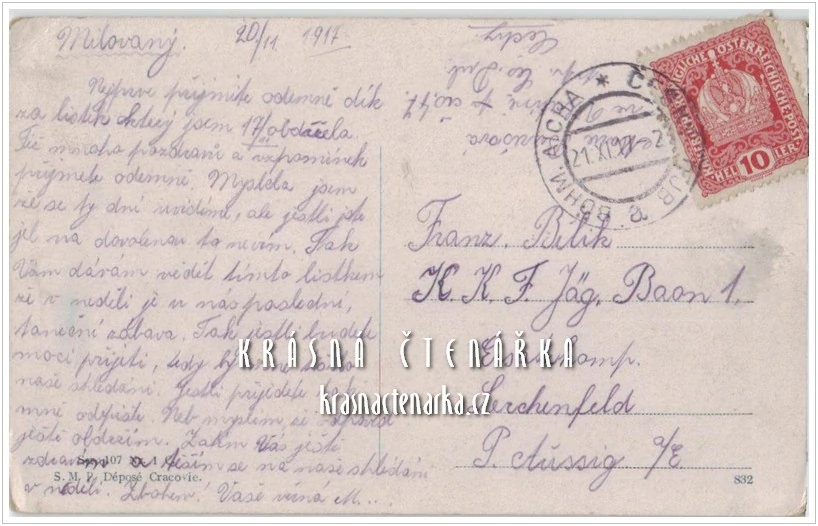 Milovaný. 20/11 1917
Nejprve přijměte odemně dík
za lístek který jsem 17/11 obdržela.
Též mnoho pozdravů a vzpomínek
přijměte odemně. Myslela jsem
že se ty dni uvidíme, ale jestli jste
jel na dovolenou to nevím. Tak
Vám dávám vědět tímto lístkem
že v neděli je u nás poslední,
taneční zábava. Tak jestli budete
moci přijeti, tedy by
naše shledání. Jestli přijedete tak
mně odepište. Neb myslím, že
ještě obdržím. Zatím Vás ještě
zdravím a těším se na naše shledání
v neděli. Zbohem! Vaše věrná M...
Čechy
BÖHM. AICHA * Č DUB
21. XI. 17
KAIS. KÖNIGLICHE ÖSTERREICHISCHE POST
HELLER 10 HELLER
Franz. Bělík
K. K. F. Jäg. Baon 1.
Ersatzkomp.
Lerchenfeld
P. Aussig a/E
KRÁSNÁ ČTENÁŘKA
krasnactenarka.cz
S. M. P. Déposé Cracovie.
832